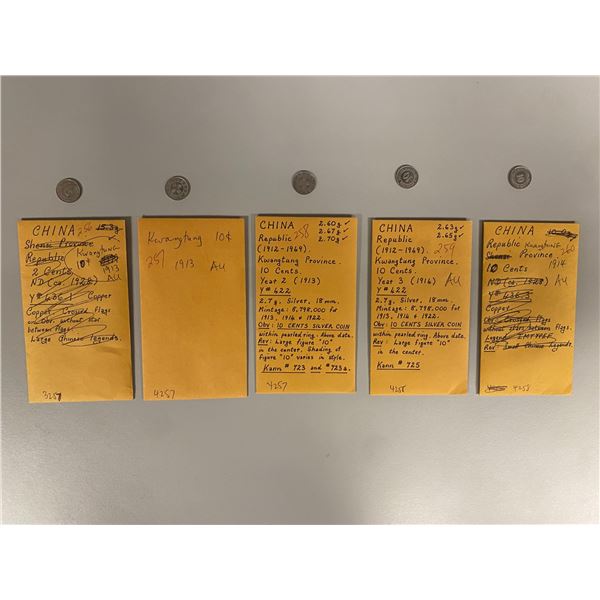 CHINA 256 15.3g
Shensi Province
Republic Kwangtung
2 Cents 10¢ 1913
ND (ca. 1928) AU
Y# 636.1 Copper
Copper, Crossed flags
on Obv. without star
between flags.
Large Chinese legends.
3257
Kwangtung 10¢
257 1913 AU
4257
CHINA 2.60g ✓
2.67g ✓
Republic 258 2.70g ✓
(1912-1949)
Kwangtung Province.
10 Cents.
Year 2 (1913)
Y# 422
2.7g. Silver. 18mm.
Mintage: 8,798,000 for
1913, 1914 & 1922.
Obv: 10 CENTS SILVER COIN
within pearled ring. Above date.
Rev: Large figure "10"
in the center. Shading of
figure "10" varies in style.
Kann # 723 and #723a.
4257
CHINA 2.63g ✓
2.65g ✓
Republic
(1912-1949). 259
Kwangtung Province.
10 Cents.
Year 3 (1914) AU
Y# 422
2.7g. Silver. 18mm.
Mintage: 8,798,000 for
1913, 1914 & 1922.
Obv: 10 CENTS SILVER COIN
within pearled ring. Above date.
Rev: Large figure "10"
in the center.
Kann # 725
4258
CHINA
Republic Kwangtung 260
Shensi Province. 1914
10 Cents
ND (ca. 1928) AU
Y# 636.3
Copper
Obv: Crossed Flags
without stars between flags.
Legend IMTYPEF
Rev: Small Chinese legends.
4258